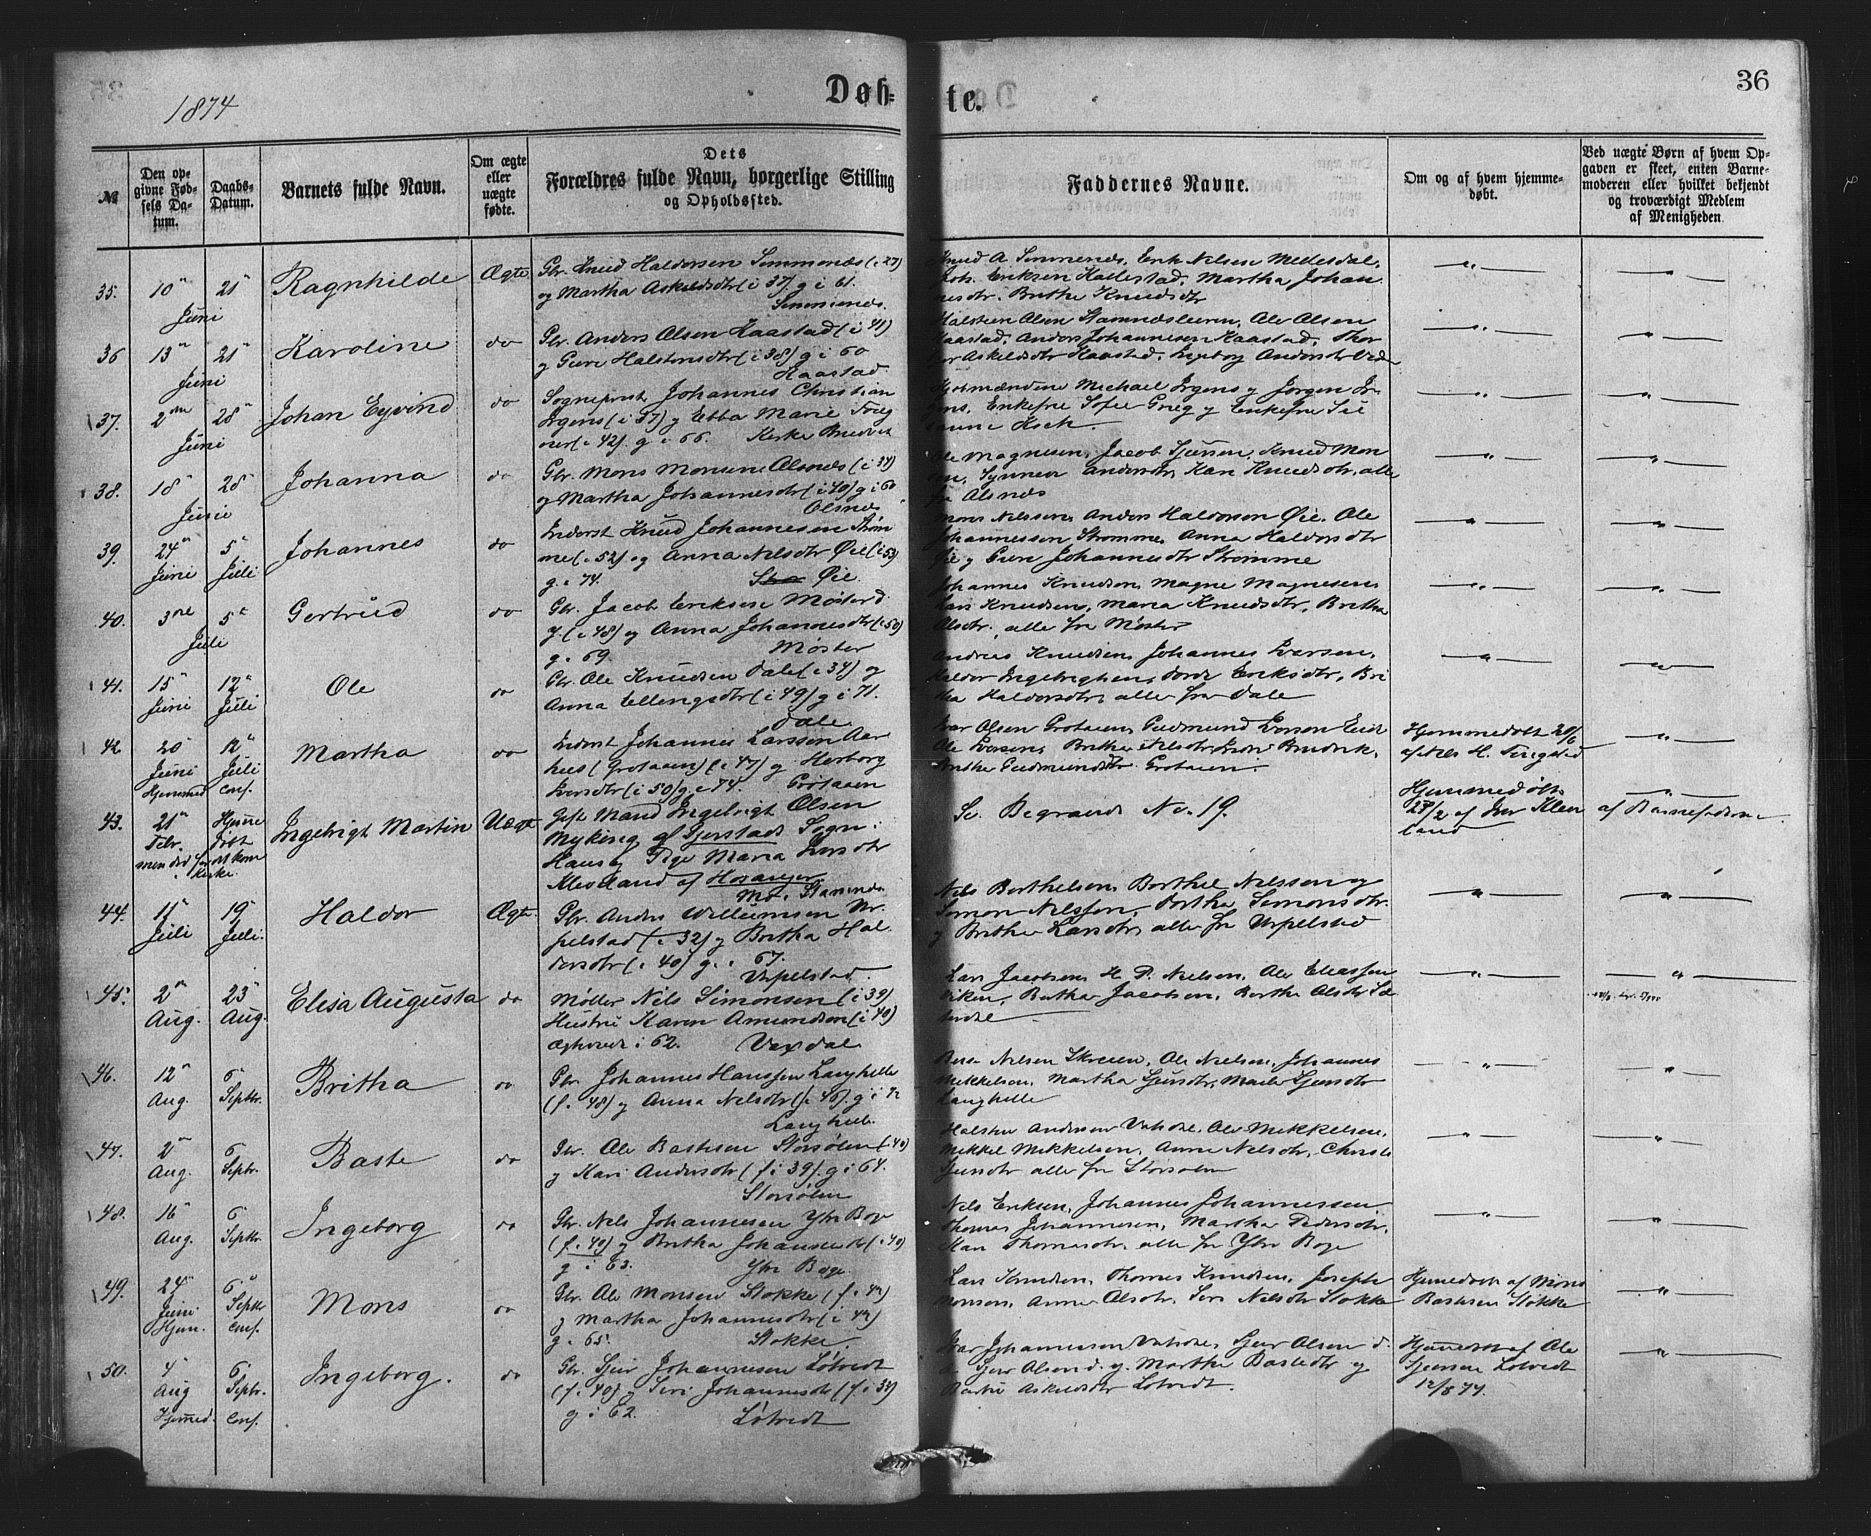 1874
Døb-
te.
36
№
Den op-
givne Fød-
sels Da-
tum.
Daabs-
Datum.
Barnets fulde Navn.
Om ægte
eller
uægte
fødte.
Dets
Forældres fulde Navn, borgerlige Stilling
og Opholdssted.
Faddernes Navne.
Om og af hvem hjemme-
døbt.
Ved uægte Børn af hvem Op-
gaven er skeet, enten Barne-
moderen eller hvilket bekjendt
og troværdigt Medlem
af Menigheden.
35. 10" Juni 21" Ragnhilde Ægte
Gbr. Knud Haldorsen Simmenæs (i 27)
og Martha Askeldsdtr (i 37) g i 61.
Simmenæs.
Knud A Simmenæs, Erik Nilsen
Joh. Eriksen Kallestad, Martha Johan-
nesdtr. Brithe Knudsdtr
36 13" Juni 21" Karoline do
Gbr. Anders Olsen Kaastad (i 41)
og Guri Halstensdtr (i 38) g i 60
Kaastad
Halsten Olsen Stamnesleeren, Ole Olsen
Kaastad, Anders Johannesen Kaastad, Thor
Askeldsdtr Kaastad, Ingeborg Andersdtr
37. 2den Juni 28" Johan Eyvind do
Sogneprest Johannes Christian
Irgens (i 37) og Ebba Marie
(i 42). g. i 66. Kirke Bruvik
Michael Irgens og Jørgen Ir-
gens, Enkefru Sofie Grieg og Enkefru
Koch.
38. 18" Juni 28" Johanna do
Gbr. Mons Monsen Olsnæs (i 34)
og Martha Johannesdtr (i 40) g i 60
Olsnæs
Ole Magnesen, Jacob Sjursen, Knud Mon-
sen, Synneva Andersdtr, Kari Knudsdtr, alle
fra Olsnæs
39. 24" Juni 5" Juli Johannes do
Inderst Knud Johannesen Strøm-
me (i 52) og Anna Nilsdtr Øie (i 53)
g. i 74. Øie.
Mons Nilssen, Anders Haldorsen Øie, Ole
Johannessen Strømme, Anna Haldorsdtr
Øie og Guri Johannesdtr Strømme
40. 3die 5te Juli Gertrud do
Gbr. Jacob Eriksen Møster d.
y. (i 48) og Anna Johannesdtr (i 50)
g. 69. Møster
Johannes Knudsen, Magne Magnesen
Lars Knudsen, Maria Knudsdtr, Britha
Olsdtr. alle fra Møster
41. 15" Juni 12" Juli Ole do
Gbr. Ole Knudsen Dale (i 34) og
Anna Ellingsdtr (i 49) g i 71.
Dale
Andreas Knudsen, Johannes Iversen,
Haldor Ingebrigtsen, Eriksdtr, Bri-
tha Haldorsdtr, alle fra Dale
42. 20" Juni Hjemmed 12" Juli conf. Martha do
Inderst Johannes Larssen Aar-
hus (Grotaaen) (i 47) og Herborg
Iversdtr (i 50) g i 74. Grotaaen
Ivar Olsen Grotaaen, Gudmund Iversen Eide
Ole Iversen, Brithe Nilsdtr Bruvik,
Brithe Gudmundsdtr Grotaaen.
Hjemmedøbt 28/6
af Nils H. Tingstad
43. 21" Febr. Hjemme-
døbt Ingebrigt Martin Uægte
Gift Mand Ingebrigt Olsen
Myking af Gjerstads Sogn i
Haus og Pige Maria Larsdtr
Kleveland af Hosanger
Se Begravede No. 19.
Hjemmedøbt
28/2 af Iver Kleve-
land
af Barnefaderen
44. 11" Juli 19" Juli. Haldor Ægte.
Gbr. Anders Willumsen Vr-
pelstad (i 32) og Britha Hal-
dorsdtr (i 40) g. i 67.
Vrpelstad.
Nils Berthelsen, Berthel Nilssen og
Simon Nilssen, Simonsdtr.
og Brithe Larsdtr, alle fra Urpelstad
45. 2" Aug. 23" Aug. Elisa Augusta do
Møller Nils Simonsen (i 39)
Hustru Karen Amundsen (i 40)
Ægteviede i 62. Vaxdal
Lars Jacobsen, H. P. Nielsen, Ole Eliassen
Viken, Bertha Jacobsen, Berthe Olsdtr
46. 12" Aug. 6" Septbr. Britha do
Gbr. Johannes Hanssen Langhelle
(f. 48) og Anna Nelsdtr (i 46). g i 72
Langhelle
Nilsen Skreien, Ole Nielsen, Johannes
Mikkelsen, Martha Sjursdtr, Marie Sjursdtr
Langhelle
47. 2" Aug. 6" Septbr. Baste do
Gbr. Ole Bastesen Storsølen (i 40)
og Kari Andersdtr (f i 39). g i 64.
Storsølen
Halsten Andersen Vatsdal, Ole Mikkelsen,
Mikkel Mikkelsen, Anna Nelsdtr, Christi
Sjursdtr alle fra Storsølen
48. 16" Aug. 6" Septbr. Ingeborg do
Gbr. Nils Johannesen Ytre Boge
(f. 40) og Britha Johannesdtr (f. 40)
g i 63. Ytre Boge.
Nels Eriksen, Johannes Johannessen
Thomas Johannesen, Martha Pedersdtr,
Kari Thomasdtr. alle fra Ytre Boge
49. 24" Juni. Hjem. 6" Septbr conf. Mons do
Gbr. Ole Monsen Stokke (f. 42)
og Martha Johannesdtr (i 42)
g. 65. Stokke
Lars Knudsen, Thomas Knudsen, Joseph
Monsen, Anna Olsdtr, Siri Nilsdtr Stokke
Hjemmedøbt af Mons
Bastesen Stokke
50. 4" Aug Hjemmed. 6" Septbr. conf. Ingeborg. do
Gbr. Sjur Johannesen Løtvedt
(f. 40) og Siri Johannesdtr (f. i 34)
g i 62. Løtvedt
Ivar Johannesen Vatsdal, Sjur Olsen d.
æ. Sjur Olsen d. y. Martha Bastedtr og
Askeldsdtr Løtvedt.
Hjemmedøbt af Ole
Sjursen Løtvedt
12/8 74.